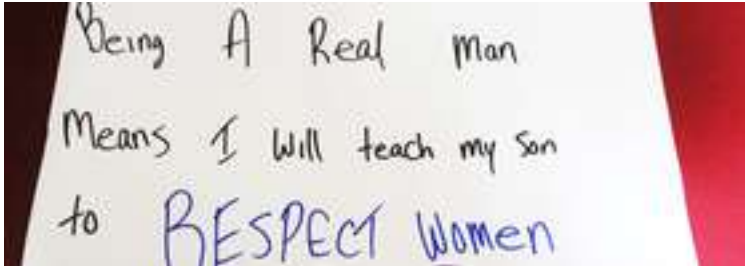 Being A Real Man
Means I Will teach my Son
to RESPECT Women